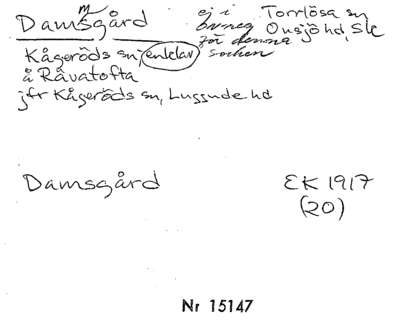 Dammsgård
ej i
bunen
för denna
socken
Torrlösa sn
Onsjö hd, Sk
Kågeröds sn, enklav
å Råvatofta
jfr Kågeröds sn, Luggude hd
Damsgård
EK 1917
(20)
Nr 15147